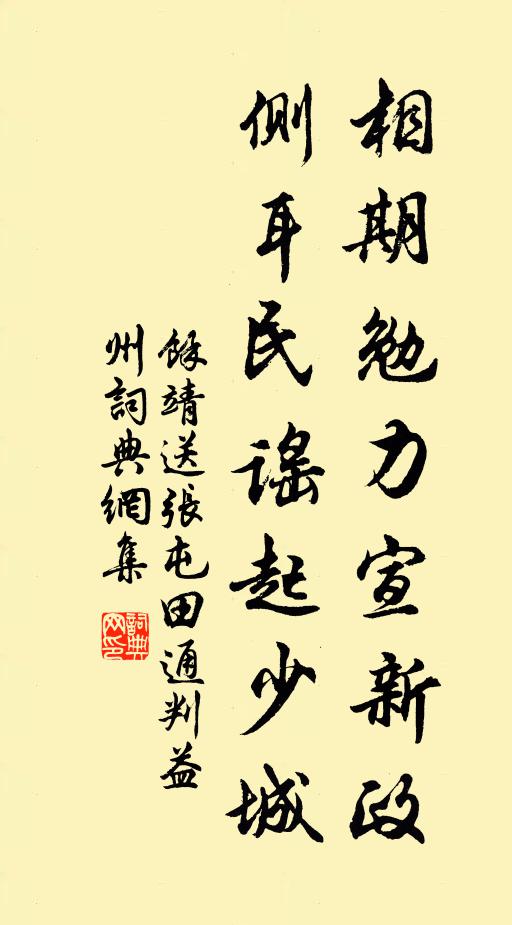 相期勉力宣新政
側耳民謠起少城
餘靖送張屯田通判益
州詞典網集
詞典网印